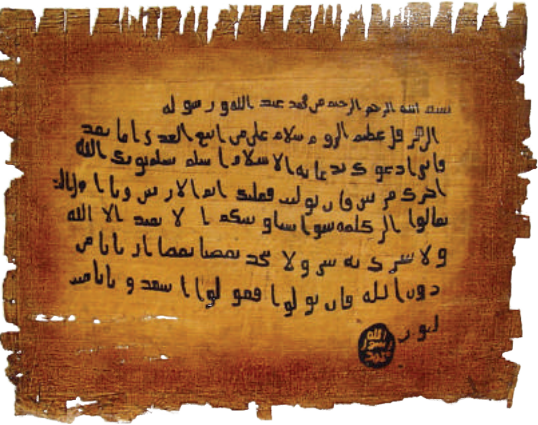 بسم الله الرحمن الرحيم من محمد عبد الله ورسوله
الى هرقل عظيم الروم سلام على من اتبع الهدى اما بعد
فانى ادعوك بدعاية الاسلام اسلم تسلم يوتك الله
اجرك مرتين فان توليت فعليك اثم الاريسين ويا
تعالوا الى كلمة سوا بيننا وبينكم الا نعبد الا الله
ولا نشرك به ولا يتخذ بعضنا بعضا اربابا من
دون الله فان تولوا فقولوا اشهدوا بانا مسلـ
ـمون
الله
رسول
محمد